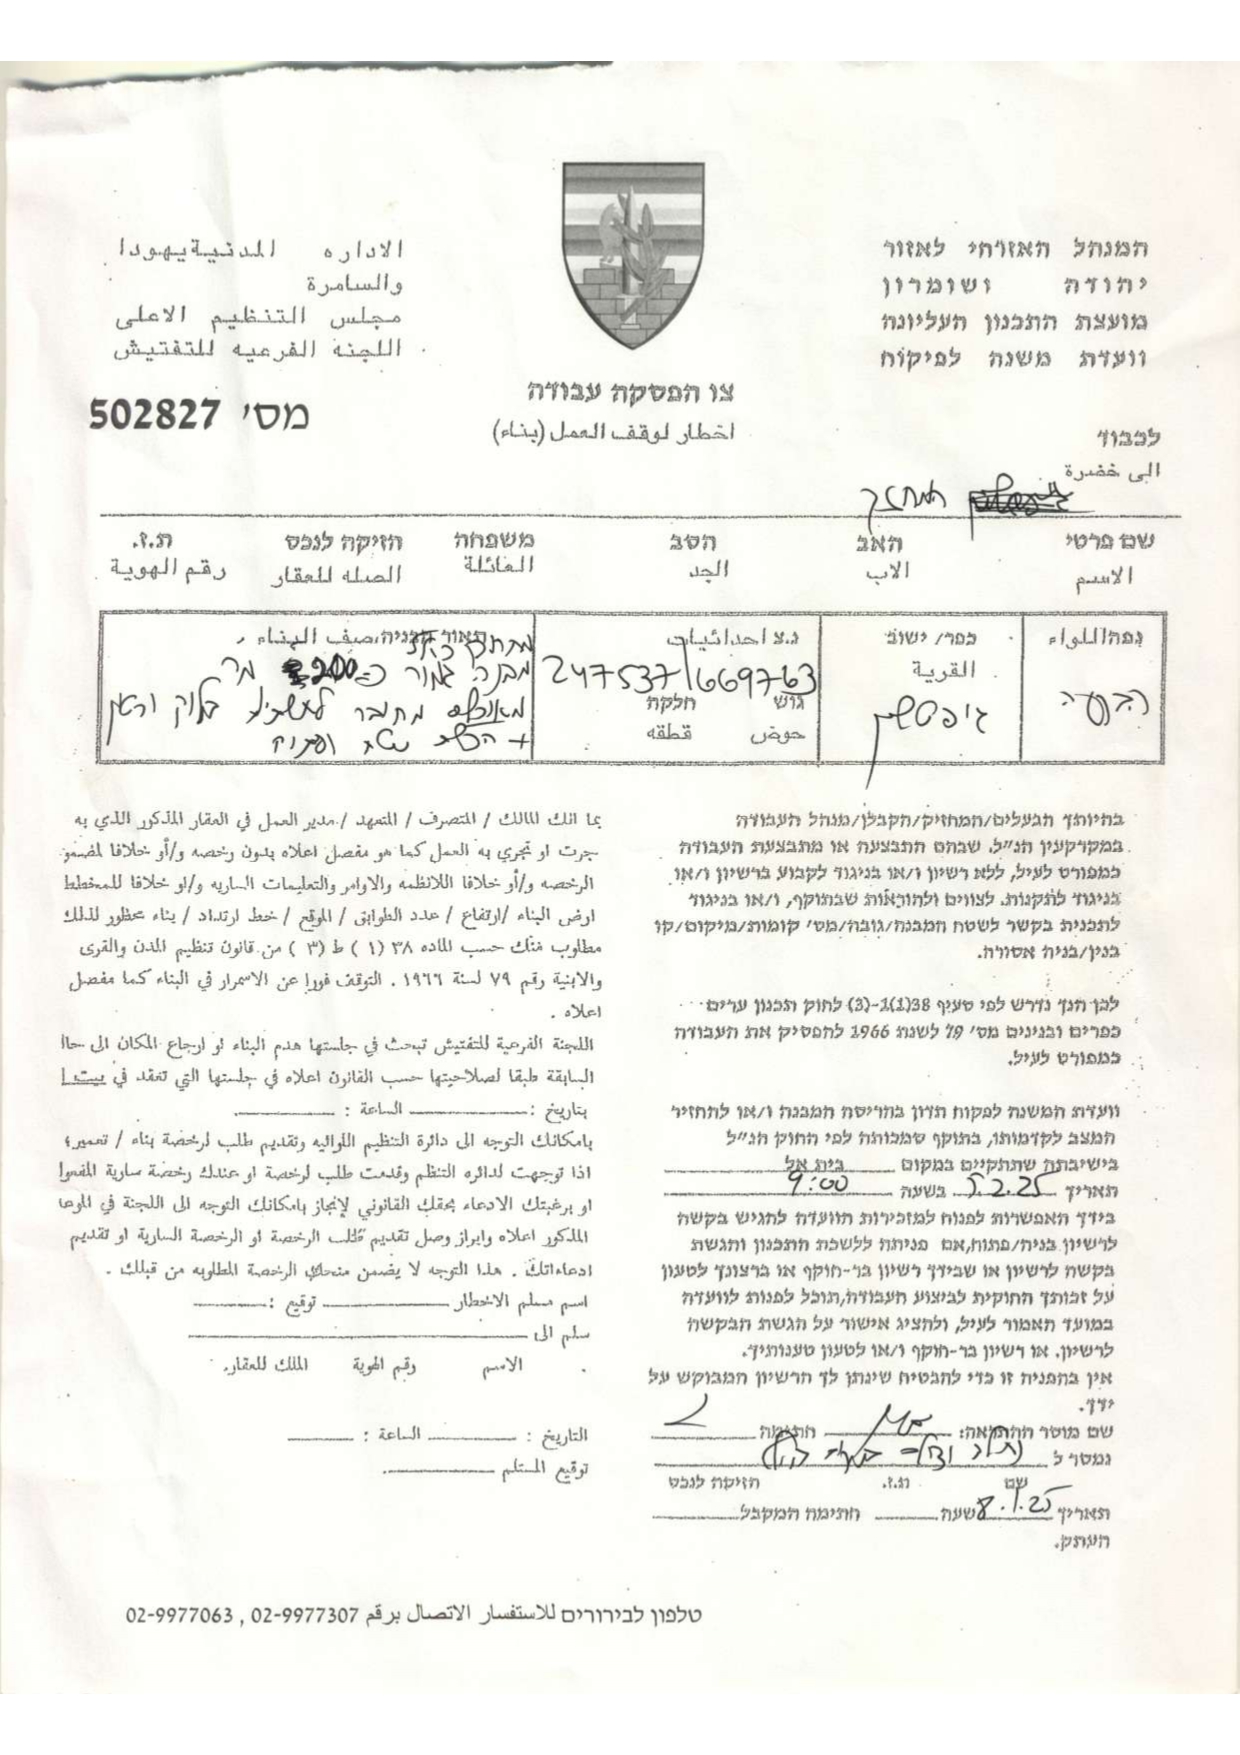 המנהל האזרחי לאזור
יהודה ושומרון
מועצת התכנון העליונה
וועדת משנה לפיקוח
الاداره المدنية يهودا
والسامرة
مجلس التنظيم الاعلى
اللجنه الفرعيه للتفتيش
צו הפסקה עבודה
اخطار لوقف العمل (بناء)
מס׳ 502827
לכבוד
الى خضرة
המחזיק
שם פרטי האב הסב משפחה הזיקה לנכס ת.ז.
الاسم الاب الجد العائلة الصله للعقار رقم الهوية
נפה اللواء
הבקעה
כפר/ ישוב
القرية
ג׳יפטליק
נ.צ احداثيات
247537/669763
גוש חלקה
حوض قطقه
תאור הבניה، صيف البناء
מבנה גמור כ-200 מר
בלוק
+ הכשרת שטח
בהיותך הבעלים/המחזיק/הקבלן/מנהל העבודה
במקרקעין הנ״ל, שבהם התבצעה או מתבצעת העבודה
כמפורט לעיל, ללא רשיון ו/או בניגוד לקבוע ברשיון ו/או
בניגוד לתקנות, לצווים ולהוראות שבתוקף, ו/או בניגוד
לתכנית בקשר לשטח המבנה/גובה/מס׳ קומות/מיקום/קו
בנין/בניה אסורה.
לכן הנך נדרש לפי סעיף 38(1)ג-(3) לחוק תכנון ערים
כפרים ובנינים מס׳ 79 לשנת 1966 להפסיק את העבודה
כמפורט לעיל.
וועדת המשנה לפקוח תדון בהריסת המבנה ו/או להחזיר
המצב לקדמותו, בתוקף סמכותה לפי החוק הנ״ל
בישיבתה שתתקיים במקום בית אל
תאריך 5.2.25 בשעה 9:00
בידך האפשרות לפנות למזכירות הוועדה להגיש בקשה
לרשיון בניה/פתוח, אם פניתה ללשכת התכנון והגשת
בקשה לרשיון או שבידך רשיון בר-תוקף או ברצונך לטעון
על זכותך החוקית לביצוע העבודה, תוכל לפנות לוועדה
במועד האמור לעיל, ולהציג אישור על הגשת הבקשה
לרשיון. או רשיון בר-תוקף ו/או לטעון טענותיך.
אין בהפניה זו כדי להבטיח שינתן לך הרשיון המבוקש על
ידך.
שם מוסר ההתראה: חתימה
נמסר ל
שם ת.ז. הזיקה לנכס
תאריך 8.1.25 שעה חתימה המקבל
העתק.
بما انك المالك / المتصرف / المتعهد / مدير العمل في العقار المذكور الذي به
جرت او تجري به العمل كما هو مفصل اعلاه بدون رخصه و/أو خلافا لمضمو
الرخصه و/أو خلافا اللانظمه والاوامر والتعليمات الساريه و/او خلافا للمخطط
ارض البناء /ارتفاع / عدد الطوابق / الموقع / خط ارتداد / بناء محظور لذلك
مطلوب منك حسب الماده ٣٨ (١) ط (٣) من قانون تنظيم المدن والقرى
والابنية رقم ٧٩ لسنة ١٩٦٦ . التوقف فورا عن الاسمرار في البناء كما مفصل
اعلاه .
اللجنة الفرعية للتفتيش تبحث في جلستها هدم البناء او ارجاع المكان الى حالا
السابقة طبقا لصلاحيتها حسب القانون اعلاه في جلستها التي تعقد في بيت ا
بتاريخ : الساعة :
بامكانك التوجه الى دائرة التنظيم اللوائيه وتقديم طلب لرخصة بناء / تعمير؛
اذا توجهت لدائره التنظم وقدمت طلب لرخصة او عندك رخصة سارية المفعوا
او برغبتك الادعاء بحقك القانوني لإنجاز بامكانك التوجه الى اللجنة في الموعا
المذكور اعلاه وابراز وصل تقديم طلب الرخصة او الرخصة السارية او تقديم
ادعاءاتك . هذا التوجه لا يضمن منحك الرخصة المطلوبه من قبلك .
اسم مسلم الاخطار توقيع :
سلم الى
الاسم رقم الهوية الملك للعقار.
التاريخ : الساعة :
توقيع المستلم
טלפון לבירורים للاستفسار الاتصال برقم 02-9977307 , 02-9977063